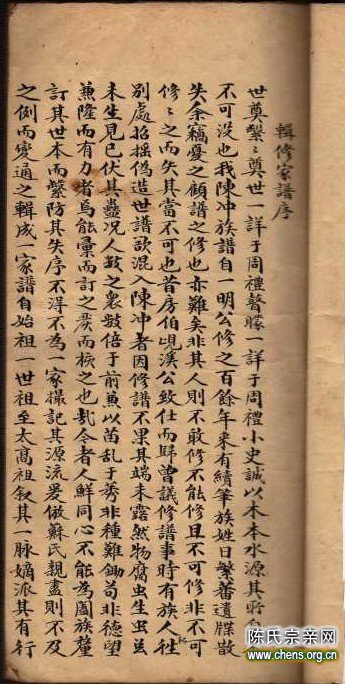 輯修家譜序
世奠繫〻奠世一詳于周禮瞽矇一詳于周禮小史誠以木本水源其昭
不可没也我陳冲族譜自一明公修之百餘年來有續筆族姓日繁蕃遺牒散
失余竊憂之顧譜之修也亦難矣非其人則不敢修不能修且不可修非不可
修〻之而失其當不可也昔房伯峴溪公致仕而歸曾議修譜事時有族人徃
別處招摇偽造世譜欲混入陳冲者因修譜不果其端未露然物腐虫生虫
未生見已伏其蠱况人致之衷數倍于前無以苗乱于莠非種難鋤苟非德望
兼隆而有力者烏能彙而訂之炭而核之也㢤今者人鮮同心不能為闔族釐
訂其世本而繫防其失序不得不為一家撮記其源流爰倣蘇氏親盡則不及
之例而変通之輯成一家譜自始祖一世祖至太高祖叙其一脉嫡派其有行
陈氏宗亲网
www.chens.org.cn